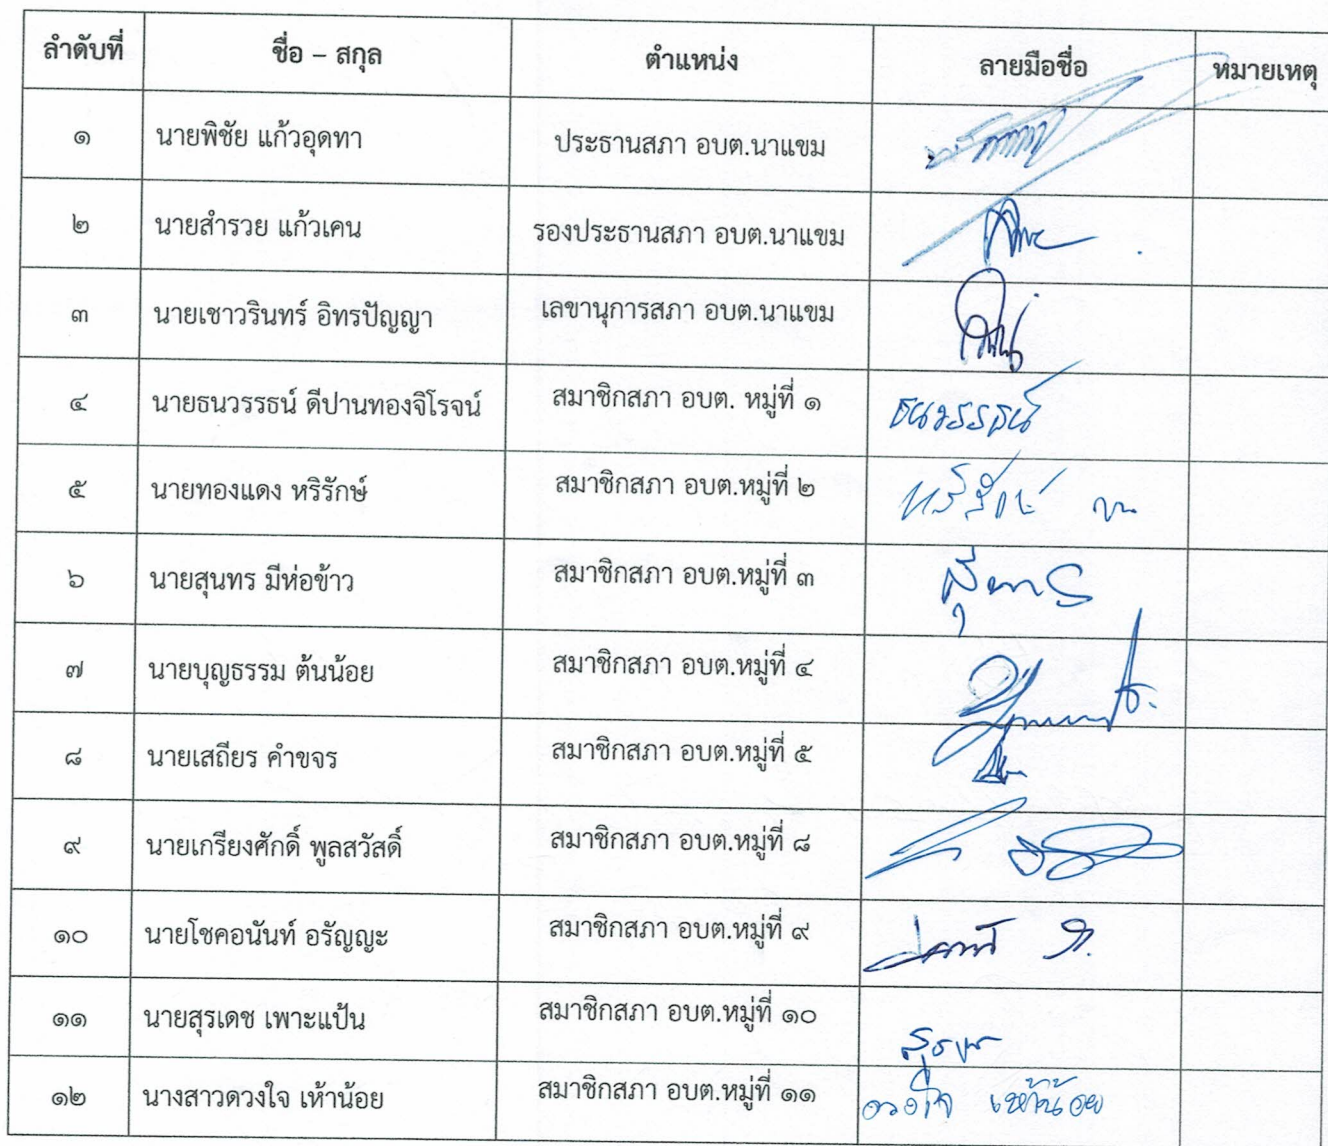 ลำดับที่ ชื่อ – สกุล ตำแหน่ง ลายมือชื่อ หมายเหตุ
๑ นายพิชัย แก้วอุดทา ประธานสภา อบต.นาแขม
๒ นายสำรวย แก้วเคน รองประธานสภา อบต.นาแขม
๓ นายเชาวรินทร์ อิทรปัญญา เลขานุการสภา อบต.นาแขม
๔ นายธนวรรธน์ ดีปานทองจิโรจน์ สมาชิกสภา อบต. หมู่ที่ ๑ ธนวรรธน์
๕ นายทองแดง หริรักษ์ สมาชิกสภา อบต.หมู่ที่ ๒
๖ นายสุนทร มีห่อข้าว สมาชิกสภา อบต.หมู่ที่ ๓
๗ นายบุญธรรม ต้นน้อย สมาชิกสภา อบต.หมู่ที่ ๔
๘ นายเสถียร คำขจร สมาชิกสภา อบต.หมู่ที่ ๕
๙ นายเกรียงศักดิ์ พูลสวัสดิ์ สมาชิกสภา อบต.หมู่ที่ ๘
๑๐ นายโชคอนันท์ อรัญญะ สมาชิกสภา อบต.หมู่ที่ ๙
๑๑ นายสุรเดช เพาะแป้น สมาชิกสภา อบต.หมู่ที่ ๑๐
๑๒ นางสาวดวงใจ เห้าน้อย สมาชิกสภา อบต.หมู่ที่ ๑๑ ดวงใจ เห้าน้อย